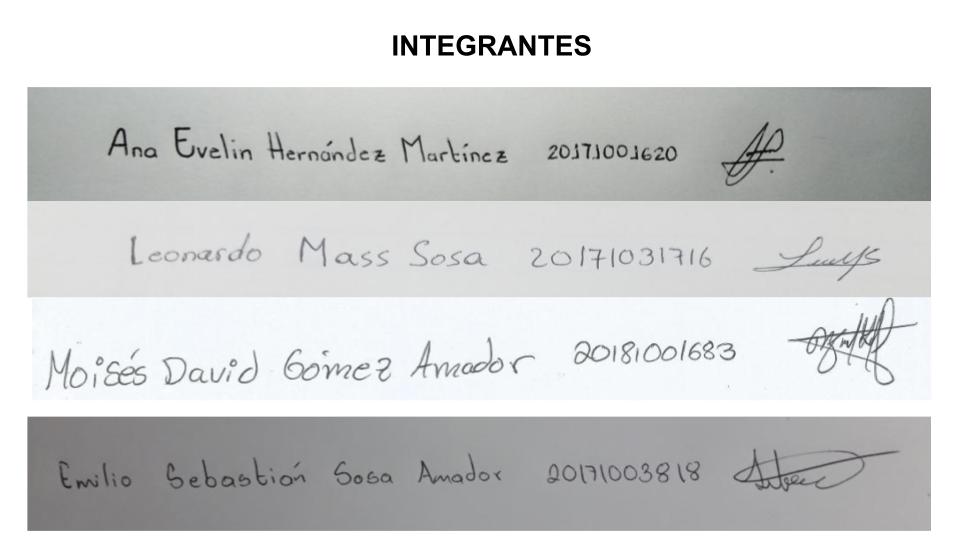 INTEGRANTES
Ana Evelin Hernández Martínez 20171001620
Leonardo Mass Sosa 20171031716
Moisés David Gómez Amador 20181001683
Emilio Sebastián Sosa Amador 20171003818